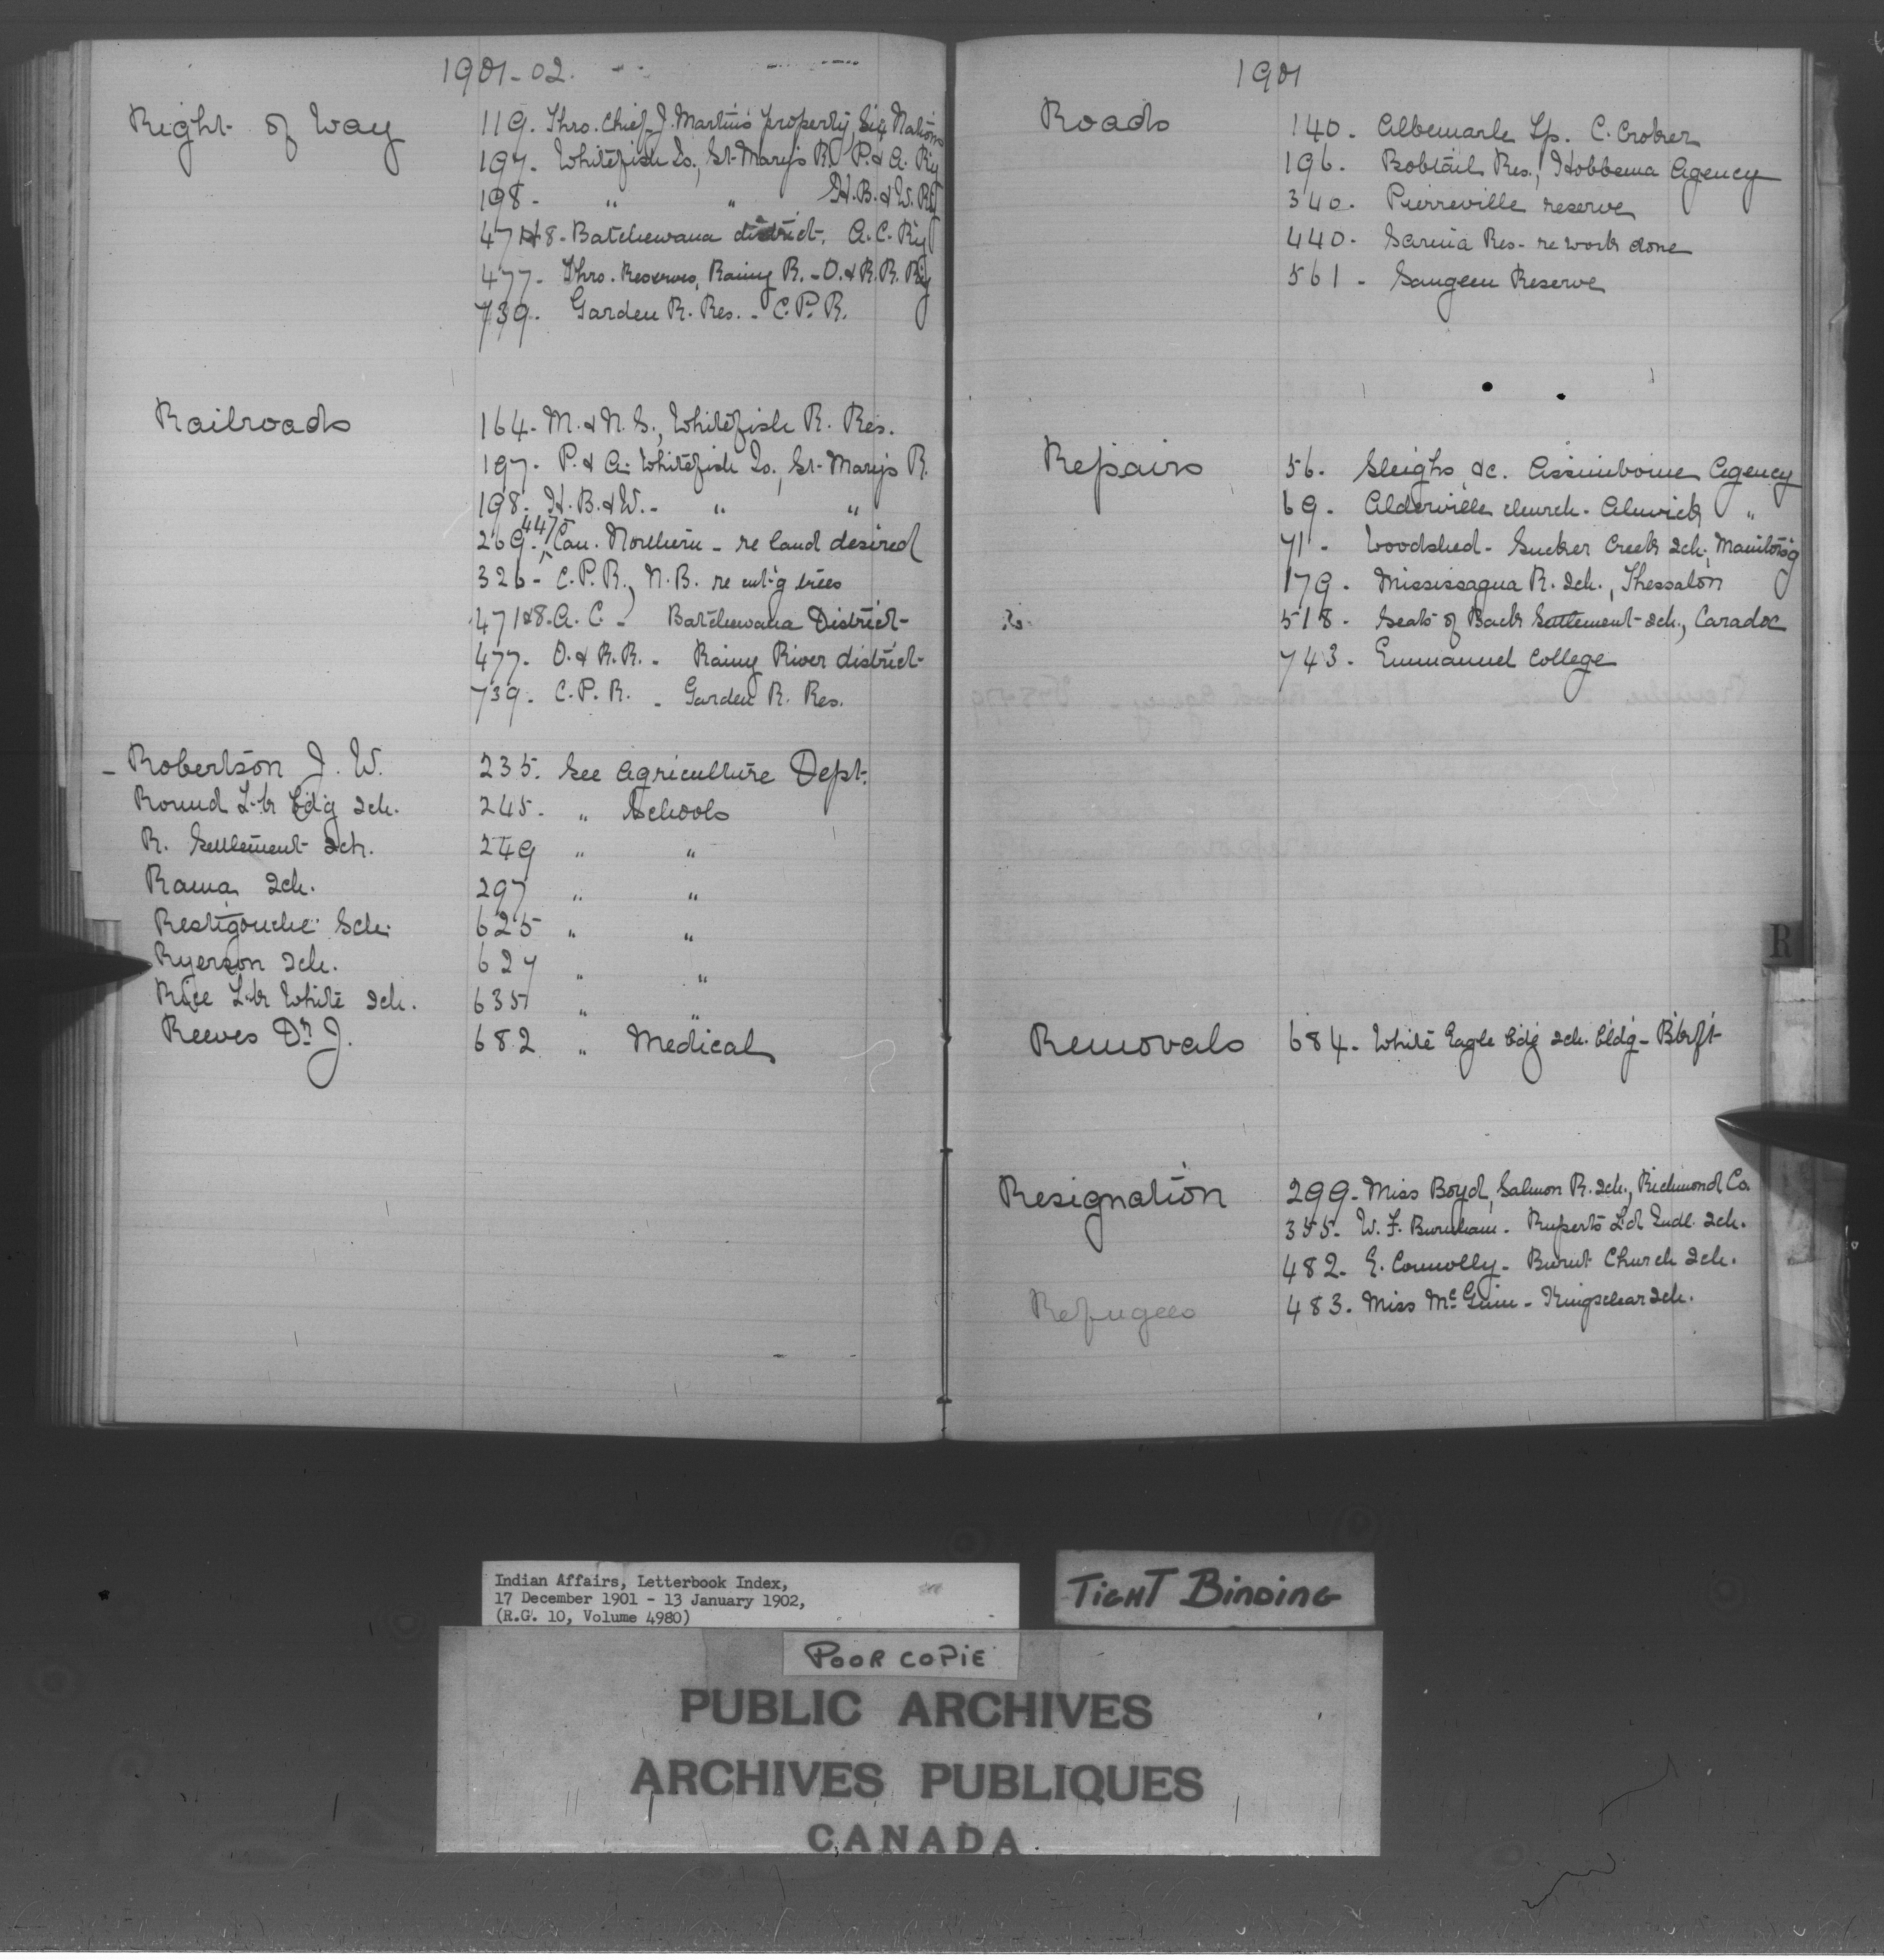 1901-02.
Right of Way
119. Thro. Chief J. Martin's property, Six Nations
197. Whitefish Is., St. Mary's R. P. & A. R'y
198. " " H. B. & W. R'y
471&8. Batchewana district. A. C. R'y
477. Thro. Reserves, Rainy R. - O. & R. R. R'y
739. Garden R. Res. - C. P. R.
Railroads
164. M. & N. S., Whitefish R. Res.
197. P. & A. Whitefish Is., St. Mary's R.
198. H. B. & W. - " "
269. 447 Can. Northern - re land desired
326 - C. P. R., N. B. re cut'g trees
471&8. A. C. - Batchewana District
477. O. & R. R. - Rainy River district
739. C. P. R. - Garden R. Res.
Robertson J. W. 235. See Agriculture Dept.
Round L-k b'd'g Sch. 245. " Schools
R. Settlement Sch. 249 " "
Rama Sch. 297 " "
Restigouche Sch. 625 " "
Ryerson Sch. 627 " "
Rice L-k White Sch. 635 " "
Reeves Dr. J. 682 " Medical
1901
Roads
140. Albemarle Tp. C. Croker
196. Bobtail Res., Hobbema Agency
340. Pierreville reserve
440. Sarnia Res. - re work done
561 - Saugeen Reserve
Repairs
56. Sleighs &c. Assiniboine Agency
69. Alderville church - Alnwick "
71 - Woodshed - Sucker Creek Sch.
179. Mississagua R. Sch., Thessalon
518. Seats of Back Settlement Sch., Caradoc
743. Emmanuel College
R
Removals
684. White Eagle b'd'g Sch. bld'g - Bkft
Resignation
299. Miss Boyd, Salmon R. Sch., Richmond Co.
355. W. F. Burnham - Ruperts Ld Indl. Sch.
482. E. Connolly - Burnt Church Sch.
483. Miss McGinn - Kingsclear Sch.
Refugees
Indian Affairs, Letterbook Index,
17 December 1901 - 13 January 1902,
(R.G. 10, Volume 4980)
TIGHT BINDING
POOR COPIE
PUBLIC ARCHIVES
ARCHIVES PUBLIQUES
CANADA